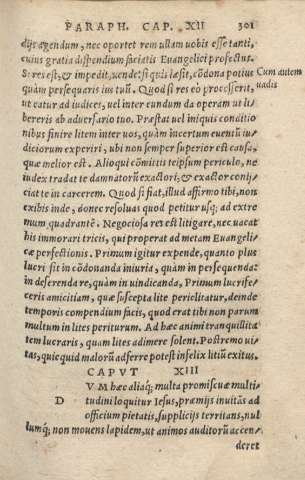 PARAPH. CAP. XII 301
dijs agendum, nec oportet rem ullam uobis esse tanti,
cuius gratia dispendium faciatis Euangelici profectus.
Si res est, & impedit, uende: si quis læsit, cōdona potius
Cum autem
quàm persequaris ius tuū. Quod si res eò processerit,
uadis
ut eatur ad iudices, uel inter eundum da operam ut li
bereris ab aduersario tuo. Præstat uel iniquis conditio
nibus finire litem inter uos, quàm incertum euentū iu/
diciorum experiri, ubi non semper superior est causa,
quæ melior est. Alioqui cōmittis teipsum periculo, ne
iudex tradat te damnatorū exactori, & exactor conij/
ciat te in carcerem. Quod si fiat, illud affirmo tibi, non
exibis inde, donec resoluas quod petitur usq; ad extre
mum quadrantē. Negociosa res est litigare, nec uacat
his immorari tricis, qui properat ad metam Euangeli/
cæ perfectionis. Primum igitur expende, quanto plus
lucri sit in cōdonanda iniuria, quàm in persequenda:
in deserenda re, quàm in uindicanda. Primum lucrife/
ceris amicitiam, quæ suscepta lite periclitatur, deinde
temporis compendium facis, quod erat tibi non parum
multum in lites periturum. Ad hæc animi tranquillita
tem lucraris, quam lites adimere solent. Postremo ui/
tas, quicquid malorū adferre potest infelix litiū exitus.
CAPVT XIII
D VM hæc aliaq; multa promiscuæ multi/
tudini loquitur Iesus, præmijs inuitās ad
officium pietatis, supplicijs territans, nul
lumq; non mouens lapidem, ut animos auditorū accen/
deret